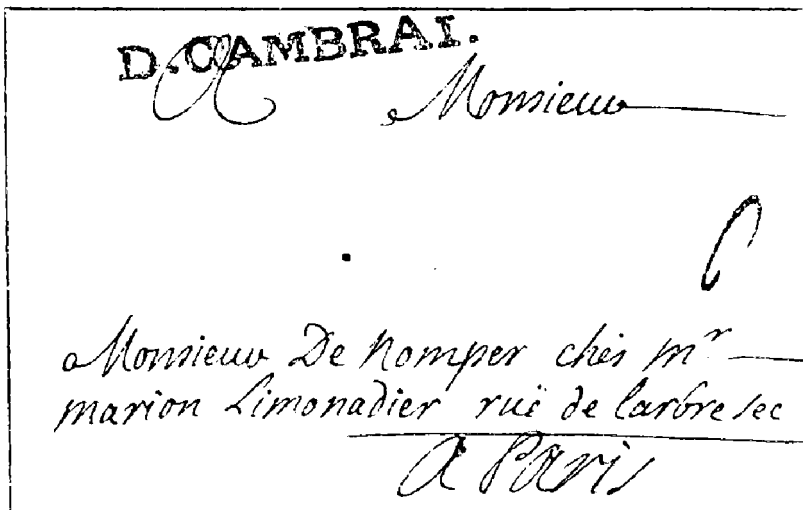 D.CAMBRAI.
A Monsieur
Monsieur De nomper chés mr
marion Limonadier ruë de larbre sec
a Paris